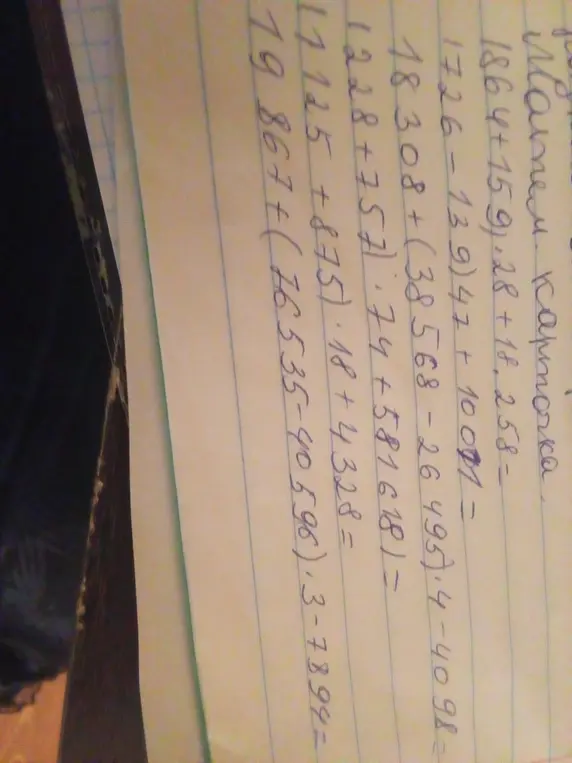 Матем. карточка.
1864+159)·28+18.258=
1726-139)47+1001=
18308+(38568-26495)·4-4098=
1228+757)·74+581618)=
11125+875)·18+4328=
19867+(76535-40596)·3-7894=